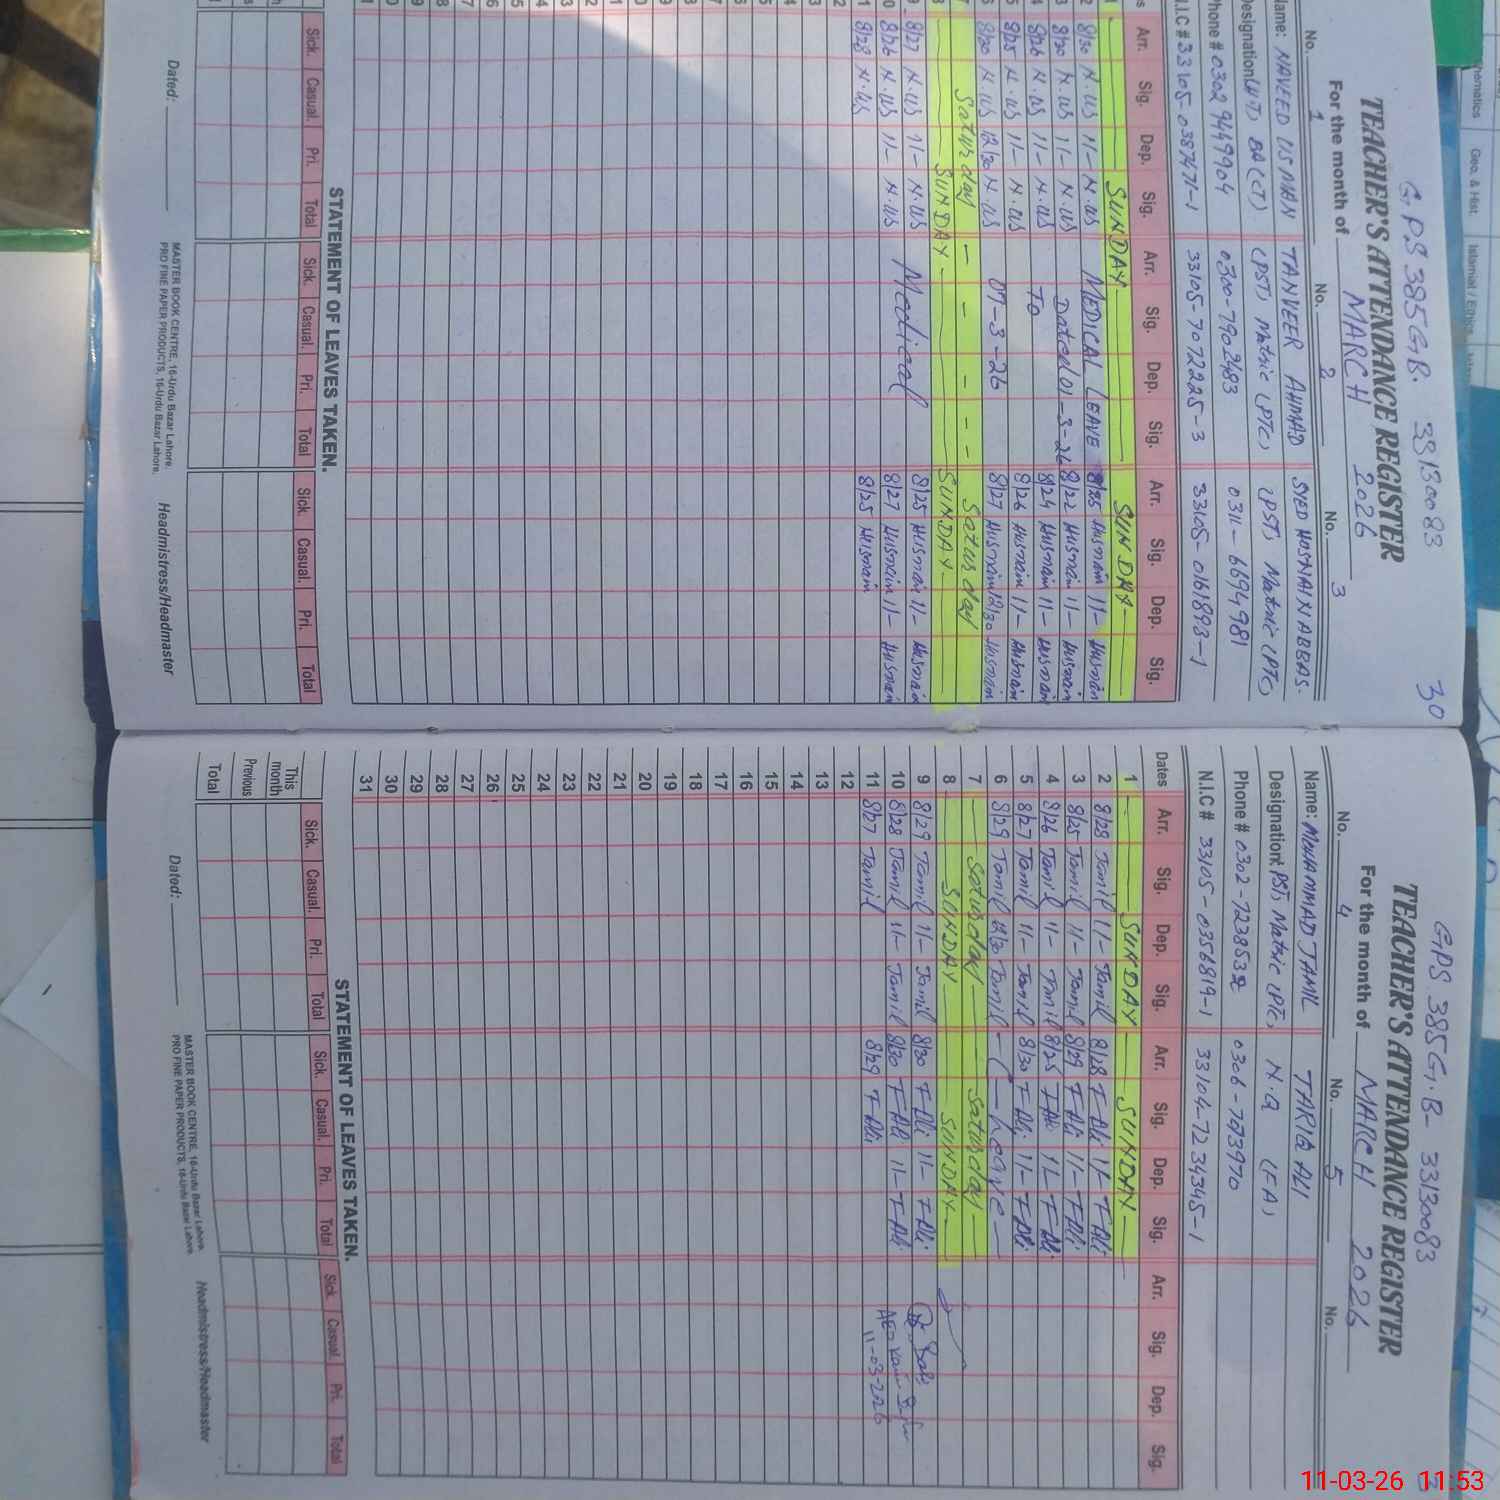 G.PS 385 G.B. 33130083
30
TEACHER'S ATTENDANCE REGISTER
For the month of MARCH 2026
No. 1 No. 2 No. 3
Name: NAVEED USMAN TANVEER AHMAD SYED HOSNAIN ABBAS.
BA (CT) (PST) Matric (PTC) (PST) Matric (PTC)
Phone # 0302 9449904 0300-7902483 0311-6694981
N.I.C # 33105-0387471-1 33105-7072225-3 33105-0161893-1
Arr. Sig. Dep. Sig. Arr. Sig. Dep. Sig. Arr. Sig. Dep. Sig.
1 SUNDAY SUNDAY
2 8/30 N.US 11- N.US MEDICAL LEAVE 8/25 Husnain 11- Husnain
3 8/30 N.US 11- N.US Dated 01-3-26 8/22 Husnain 11- Husnain
4 8/26 N.US 11- N.US To 8/24 Husnain 11- Husnain
5 8/25 N.US 11- N.US 8/26 Husnain 11- Husnain
6 8/30 N.US 12/30 N.US 07-3-26 8/27 Husnain 12/30 Husnain
7 Saturday - - - - - Saturday
8 SUNDAY SUNDAY
9 8/27 N.US 11- N.US Medical 8/25 Husnain 11- Husnain
10 8/26 N.US 11- N.US 8/27 Husnain 11- Husnain
11 8/28 N.US 8/25 Husnain
STATEMENT OF LEAVES TAKEN.
Sick. Casual. Pri. Total Sick. Casual. Pri. Total Sick. Casual. Pri. Total
Dated: Headmistress/Headmaster
MASTER BOOK CENTRE, 16-Urdu Bazar Lahore.
PRO FINE PAPER PRODUCTS, 16-Urdu Bazar Lahore.
GPS 385 G.B- 33130083
TEACHER'S ATTENDANCE REGISTER
For the month of MARCH 2026
No. 4 No. 5 No.
Name: MOHAMMAD JAMIL TARIQ ALI
Designation: PST, Matric (PTC) N.Q (FA)
Phone # 0302-7238532
N.I.C # 33105-0356819-1 33104-7234345-1
Dates Arr. Sig. Dep. Sig. Arr. Sig. Dep. Sig. Arr. Sig. Dep. Sig.
1 SUNDAY SUNDAY
2 8/28 Jamil 11- Jamil 8/28 F Ali 11- F Ali
3 8/25 Jamil 11- Jamil 8/29 F Ali 11- F Ali
4 8/26 Jamil 11- Jamil 8/25 F Ali 11- F Ali
5 8/27 Jamil 11- Jamil 8/30 F Ali 11- F Ali
6 8/29 Jamil 12/30 Jamil Leave
7 Saturday Saturday
8 SUNDAY SUNDAY
9 8/29 Jamil 11- Jamil 8/30 F Ali 11- F Ali
10 8/28 Jamil 11- Jamil 8/30 F Ali 11- F Ali
11 8/27 Jamil 8/29 F Ali 11-03-2026
12
13
14
15
16
17
18
19
20
21
22
23
24
25
26
27
28
29
30
31
STATEMENT OF LEAVES TAKEN.
Sick. Casual. Pri. Total Sick. Casual. Pri. Total Sick. Casual. Pri. Total
This month
Previous
Total
Dated: Headmistress/Headmaster
MASTER BOOK CENTRE, 16-Urdu Bazar Lahore.
PRO FINE PAPER PRODUCTS, 16-Urdu Bazar Lahore.
Geo. & Hist.
11-03-26 11:53